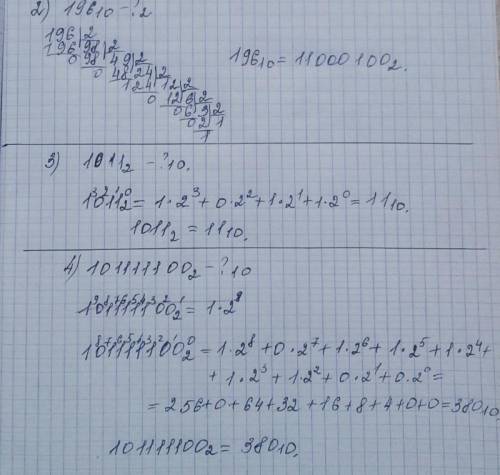 2) 196₁₀ - ? 2
196 | 2
196 | 98 | 2
0 98 | 49 | 2
0 48 | 24 | 2
1 24 | 12 | 2
0 12 | 6 | 2
0 6 | 3 | 2
0 2 | 1
1
196₁₀ = 11000100₂.
3) 1011₂ - ? 10.
1³0²1¹1⁰₂ = 1·2³ + 0·2² + 1·2¹ + 1·2⁰ = 11₁₀.
1011₂ = 11₁₀.
4) 101111100₂ - ? 10
1⁹0⁸1⁷1⁶1⁵1⁴1³0²0¹₂ = 1·2⁹
1⁸0⁷1⁶1⁵1⁴1³1²0¹0⁰₂ = 1·2⁸ + 0·2⁷ + 1·2⁶ + 1·2⁵ + 1·2⁴ +
+ 1·2³ + 1·2² + 0·2¹ + 0·2⁰ =
= 256+0+64+32+16+8+4+0+0=380₁₀
101111100₂ = 380₁₀.